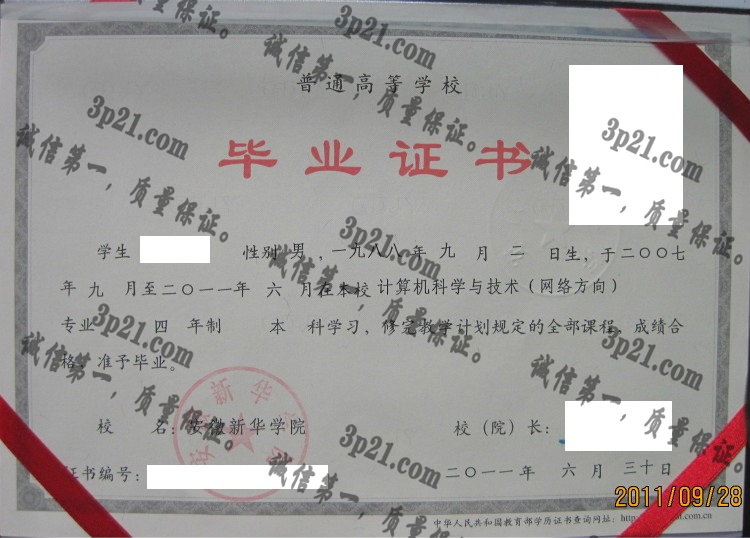 普通高等学校
毕业证书
学生 性别 男 ，一九八八年 九 月 二 日生，于二〇〇七
年 九 月至二〇一一年 六 月在本校 计算机科学与技术（网络方向）
专业 四 年制 本 科学习，修完教学计划规定的全部课程，成绩合
格，准予毕业。
校 名：安徽新华学院 校（院）长：
证书编号： 二〇一一年 六 月 三十日
中华人民共和国教育部学历证书查询网址：
2011/09/28
3p21.com
诚信第一，质量保证。
3p21.com
诚信第一，质量保证。
3p21.com
诚信第一，质量保证。
3p21.com
诚信第一，质量保证。
3p21.com
诚信第一，质量保证。
3p21.com
诚信第一，质量保证。
3p21.com
诚信第一，质量保证。
3p21.com
诚信第一，质量